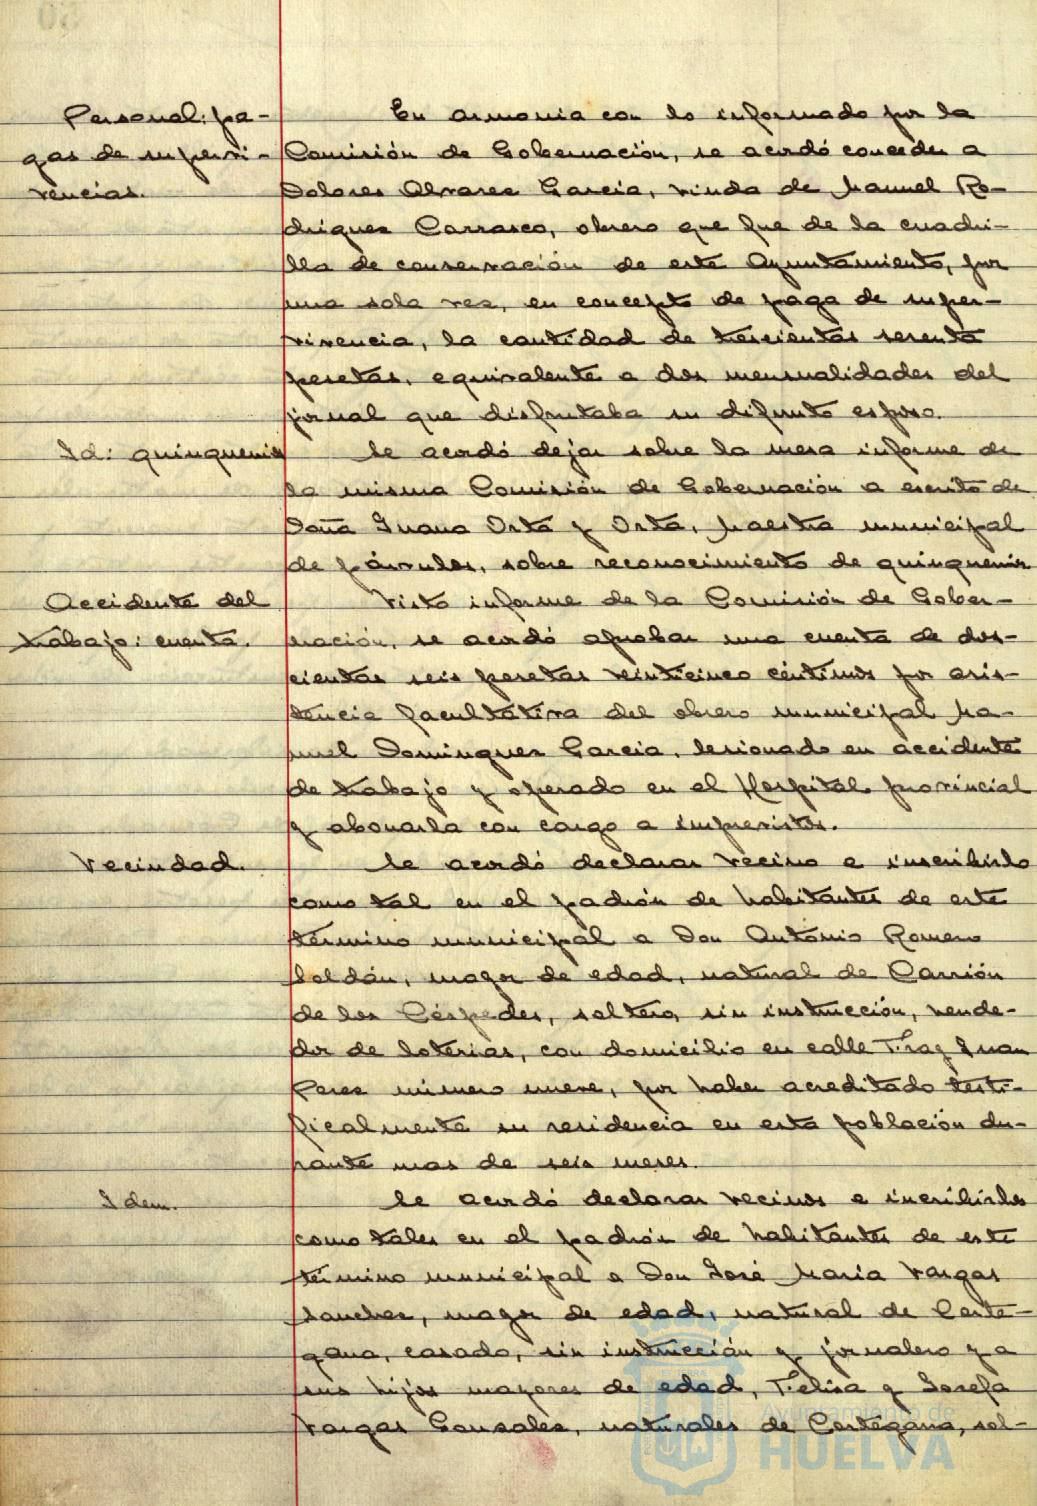 Personal: pa-
gas de supervi-
vencias.
En armonia con lo informado por la
Comisión de Gobernación, se acordó conceder a
Dolores Alvarez Garcia, viuda de Manuel Ro-
driguez Carrasco, obrero que fue de la cuadri-
lla de conservación de este Ayuntamiento, por
una sola vez, en concepto de paga de super-
vivencia, la cantidad de trescientas sesenta
pesetas, equivalente a dos mensualidades del
jornal que disfrutaba su difunto esposo.
Id: quinquenios
Se acordó dejar sobre la mesa informe de
la misma Comisión de Gobernación a escrito de
Doña Juana Orta y Orta, Maestra municipal
de párvulos, sobre reconocimiento de quinquenios
Accidente del
trabajo: cuenta.
Visto informe de la Comisión de Gober-
nación, se acordó aprobar una cuenta de dos-
cientas seis pesetas veinticinco céntimos por asis-
tencia facultativa del obrero municipal Ma-
nuel Dominguez Garcia, lesionado en accidente
de trabajo y operado en el Hospital provincial
y abonarla con cargo a imprevistos.
Vecindad.
Se acordó declarar vecino e inscribirlo
como tal en el padrón de habitantes de este
término municipal a Don Antonio Romero
Soldán, mayor de edad, natural de Carrión
de los Céspedes, soltero, sin instrucción, vende-
dor de loterias, con domicilio en calle Fray Juan
Perez número nueve, por haber acreditado testi-
ficalmente su residencia en esta población du-
rante mas de seis meses.
Idem.
Se acordó declarar vecinos e inscribirlos
como tales en el padrón de habitantes de este
término municipal a Don José Maria Vargas
Sanchez, mayor de edad, natural de Corte-
gana, casado, sin instrucción y jornalero y a
sus hijos mayores de edad, Felisa y Josefa
Vargas Gonzalez, naturales de Cortegana, sol-
Ayuntamiento de
HUELVA